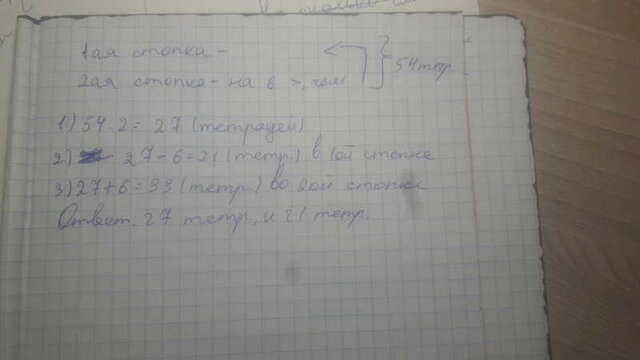 1ая стопка -
2ая стопка - на 6 >, чем } 54 тетр.
1) 54 2 = 27 (тетрадей)
2) 27 - 6 = 21 (тетр.) в 1ой стопке
3) 27 + 6 = 33 (тетр.) во 2ой стопке
Ответ 27 тетр. и 21 тетр.